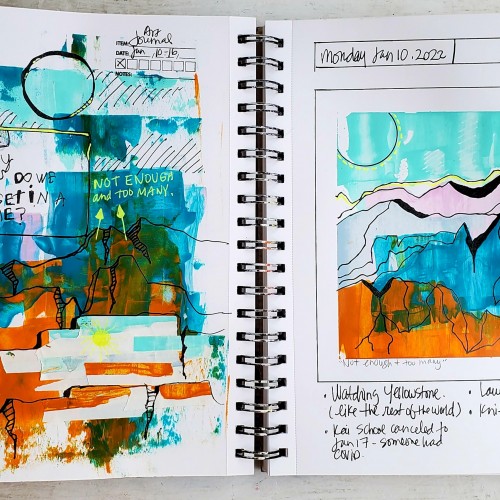 ITEM: Art Journal
DATE: Jan, 10-16,
NOTES:
DO WE
GET in A
NOT ENOUGH
and TOO MANY.
Monday Jan 10. 2022
"Not enough + too many"
• Watching Yellowstone.
(like the rest of the world)
• Kai School canceled to
Jan 17 - someone had
COVID.